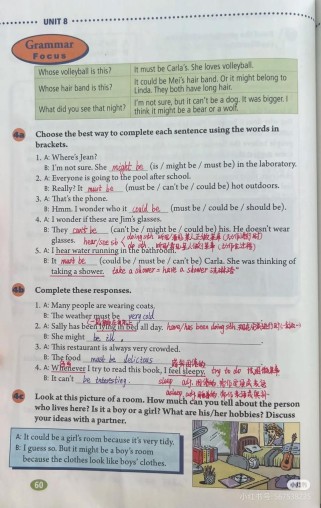 UNIT 8
Grammar
Focus
Whose volleyball is this? It must be Carla's. She loves volleyball.
Whose hair band is this? It could be Mei's hair band. Or it might belong to
Linda. They both have long hair.
What did you see that night? I'm not sure, but it can't be a dog. It was bigger. I
think it might be a bear or a wolf.
4a Choose the best way to complete each sentence using the words in
brackets.
1. A: Where's Jean?
B: I'm not sure. She might be (is / might be / must be) in the laboratory.
2. A: Everyone is going to the pool after school.
B: Really? It must be (must be / can't be / could be) hot outdoors.
3. A: That's the phone.
B: Hmm. I wonder who it could be (must be / could be / should be).
4. A: I wonder if these are Jim's glasses.
B: They can't be (can't be / might be / could be) his. He doesn't wear
glasses. hear/see sb doing sth
do sth
5. A: I hear water running in the bathroom.
B: It must be (could be / must be / can't be) Carla. She was thinking of
taking a shower. take a shower = have a shower
4b Complete these responses.
1. A: Many people are wearing coats.
B: The weather must be very cold
2. A: Sally has been lying in bed all day. have/has been doing sth
B: She might be ill.
3. A: This restaurant is always very crowded.
B: The food must be delicious
4. A: Whenever I try to read this book, I feel sleepy. try to do
B: It can't be interesting.
4c Look at this picture of a room. How much can you tell about the person
who lives here? Is it a boy or a girl? What are his/her hobbies? Discuss
your ideas with a partner.
A: It could be a girl's room because it's very tidy.
B: I guess so. But it might be a boy's room
because the clothes look like boys' clothes.
60
小红书